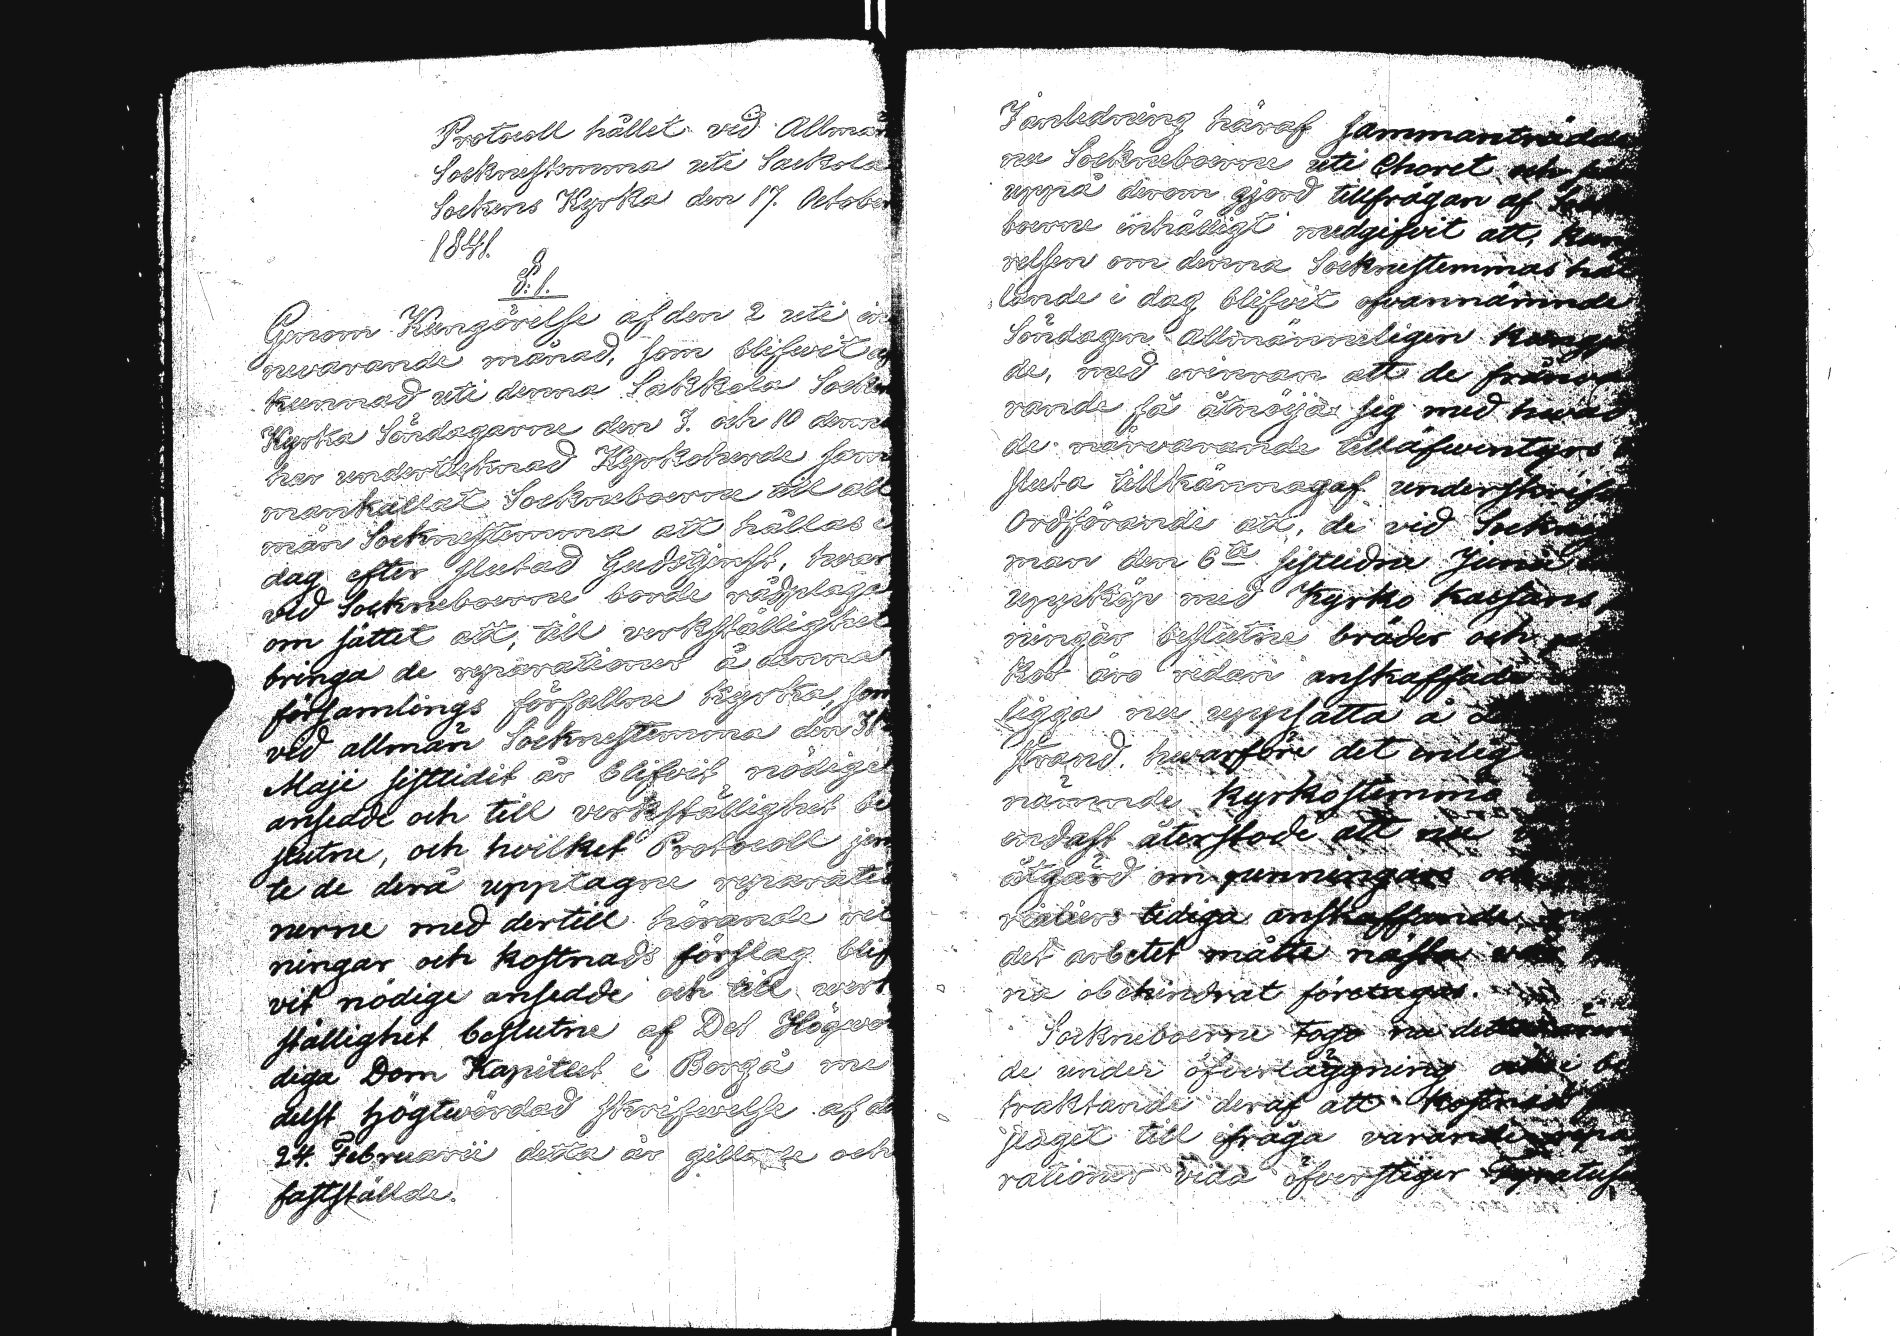 Protocoll hållet vid Allmän
Socknestemma uti Sackola
Sockens Kyrka den 17. October
1841.
§. 1.
Genom Kungörelse af den 2 uti in
nevarande månad, som blifvit af
kunnad uti denna Sakkola Socken
Kyrka Söndagarne den 3. och 10 denne
har undertecknad Kyrkoherde sam
mankallat Sockneboerne till all
män Socknestemma att hållas i
dag efter slutad Gudstjenst, hvar
vid Sockneboerne borde rådplaga
om sättet att, till verkställighet
bringa de reparationer å denna
församlings förfallne Kyrka, som
vid allmän Socknestemma den 31
Maji sistlidit år blifvit nödige
ansedde och till verkställighet be
slutne, och hvilket Protocoll jem
te de derå upptagne reparatio
nerne med dertill hörande rit
ningar och kostnads förslag blif
vit nödige ansedde och till werk
ställighet beslutne af Det Högwör
diga Dom Kapitlet i Borgå me
delst högtwördad skrifwelse af de
24. Februarii detta år gillade och
fastställde.
I anledning häraf sammanträdde
nu Sockneboerne uti Choret och
uppå derom gjord tillfrågan af
boerne enhälligt medgifvit att, kung
relsen om denna Socknestemmas hål
lande i dag blifvit ofvannämnde
Söndagen Allmänneligen kungjor
de, med erinran att de frånva
rande få åtnöija sig med hwad
de närvarande tilläfwentyrs
sluta tillkännagaf underskrifne
Ordförande att, de vid Sockne
man den 6te sistlidne Junii
uppköp med Kyrko kassans
ningar beslutne bräder och
kor äro redan anskaffade
ligga nu uppsatta å
strand. hwarföre det enligt
nämnde kyrkostemma
endast återstode att nu
åtgärd om penningars och
rialiers tidiga anskaffande,
det arbetet måtte nästa vår
na obehindrat företagas.
Sockneboerne togo nu detta
de under öfverläggning och i be
traktande deraf att kostnads
slaget till ifråga varande repa
rationer vida öfverstiger Fyratusen